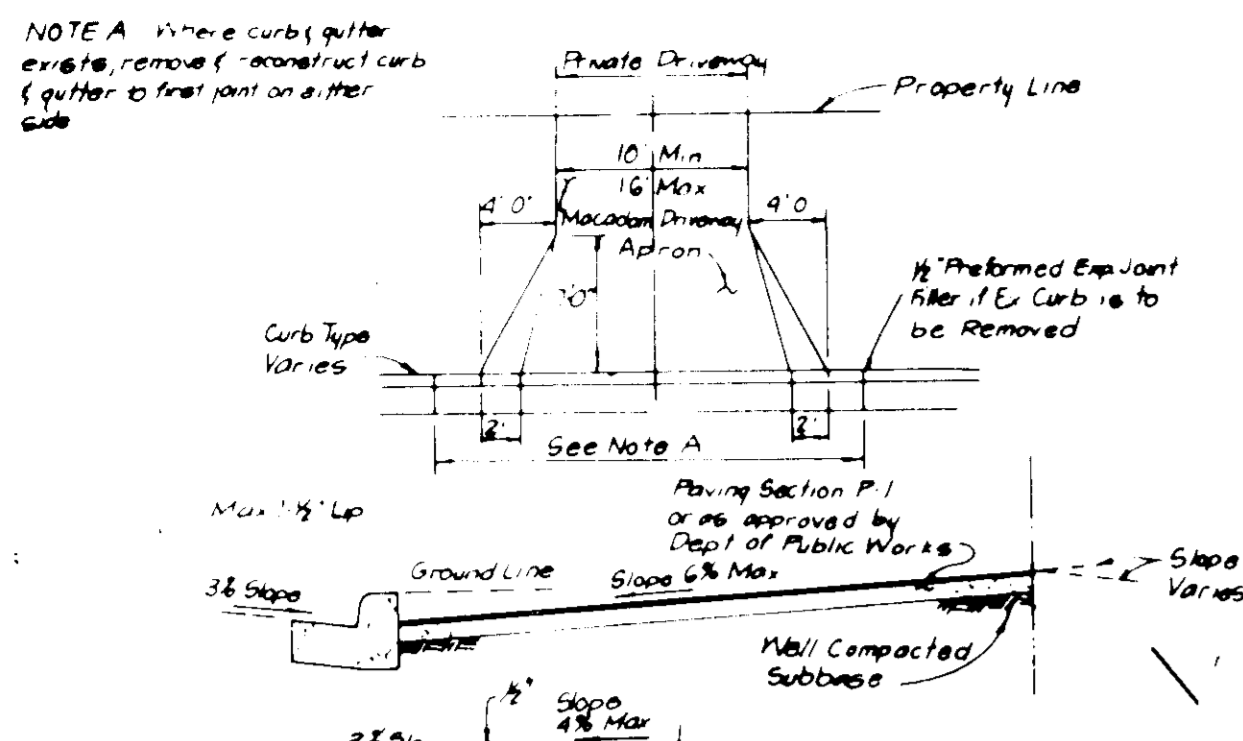 NOTE A Where curb & gutter
exists, remove & reconstruct curb
& gutter to first joint on either
side
Private Driveway
Property Line
10' Min
16' Max
4'0"
Macadam Driveway
4'0
Apron
½" Preformed Exp Joint
Filler if Ex Curb is to
be Removed
Curb Type
Varies
2'
2'
See Note A
Max 1-½" Lip
Paving Section P-1
or as approved by
Dept of Public Works
Ground Line
Slope 6% Max
3% Slope
Slope
Varies
Well Compacted
Subbase
½"
Slope
4% Max